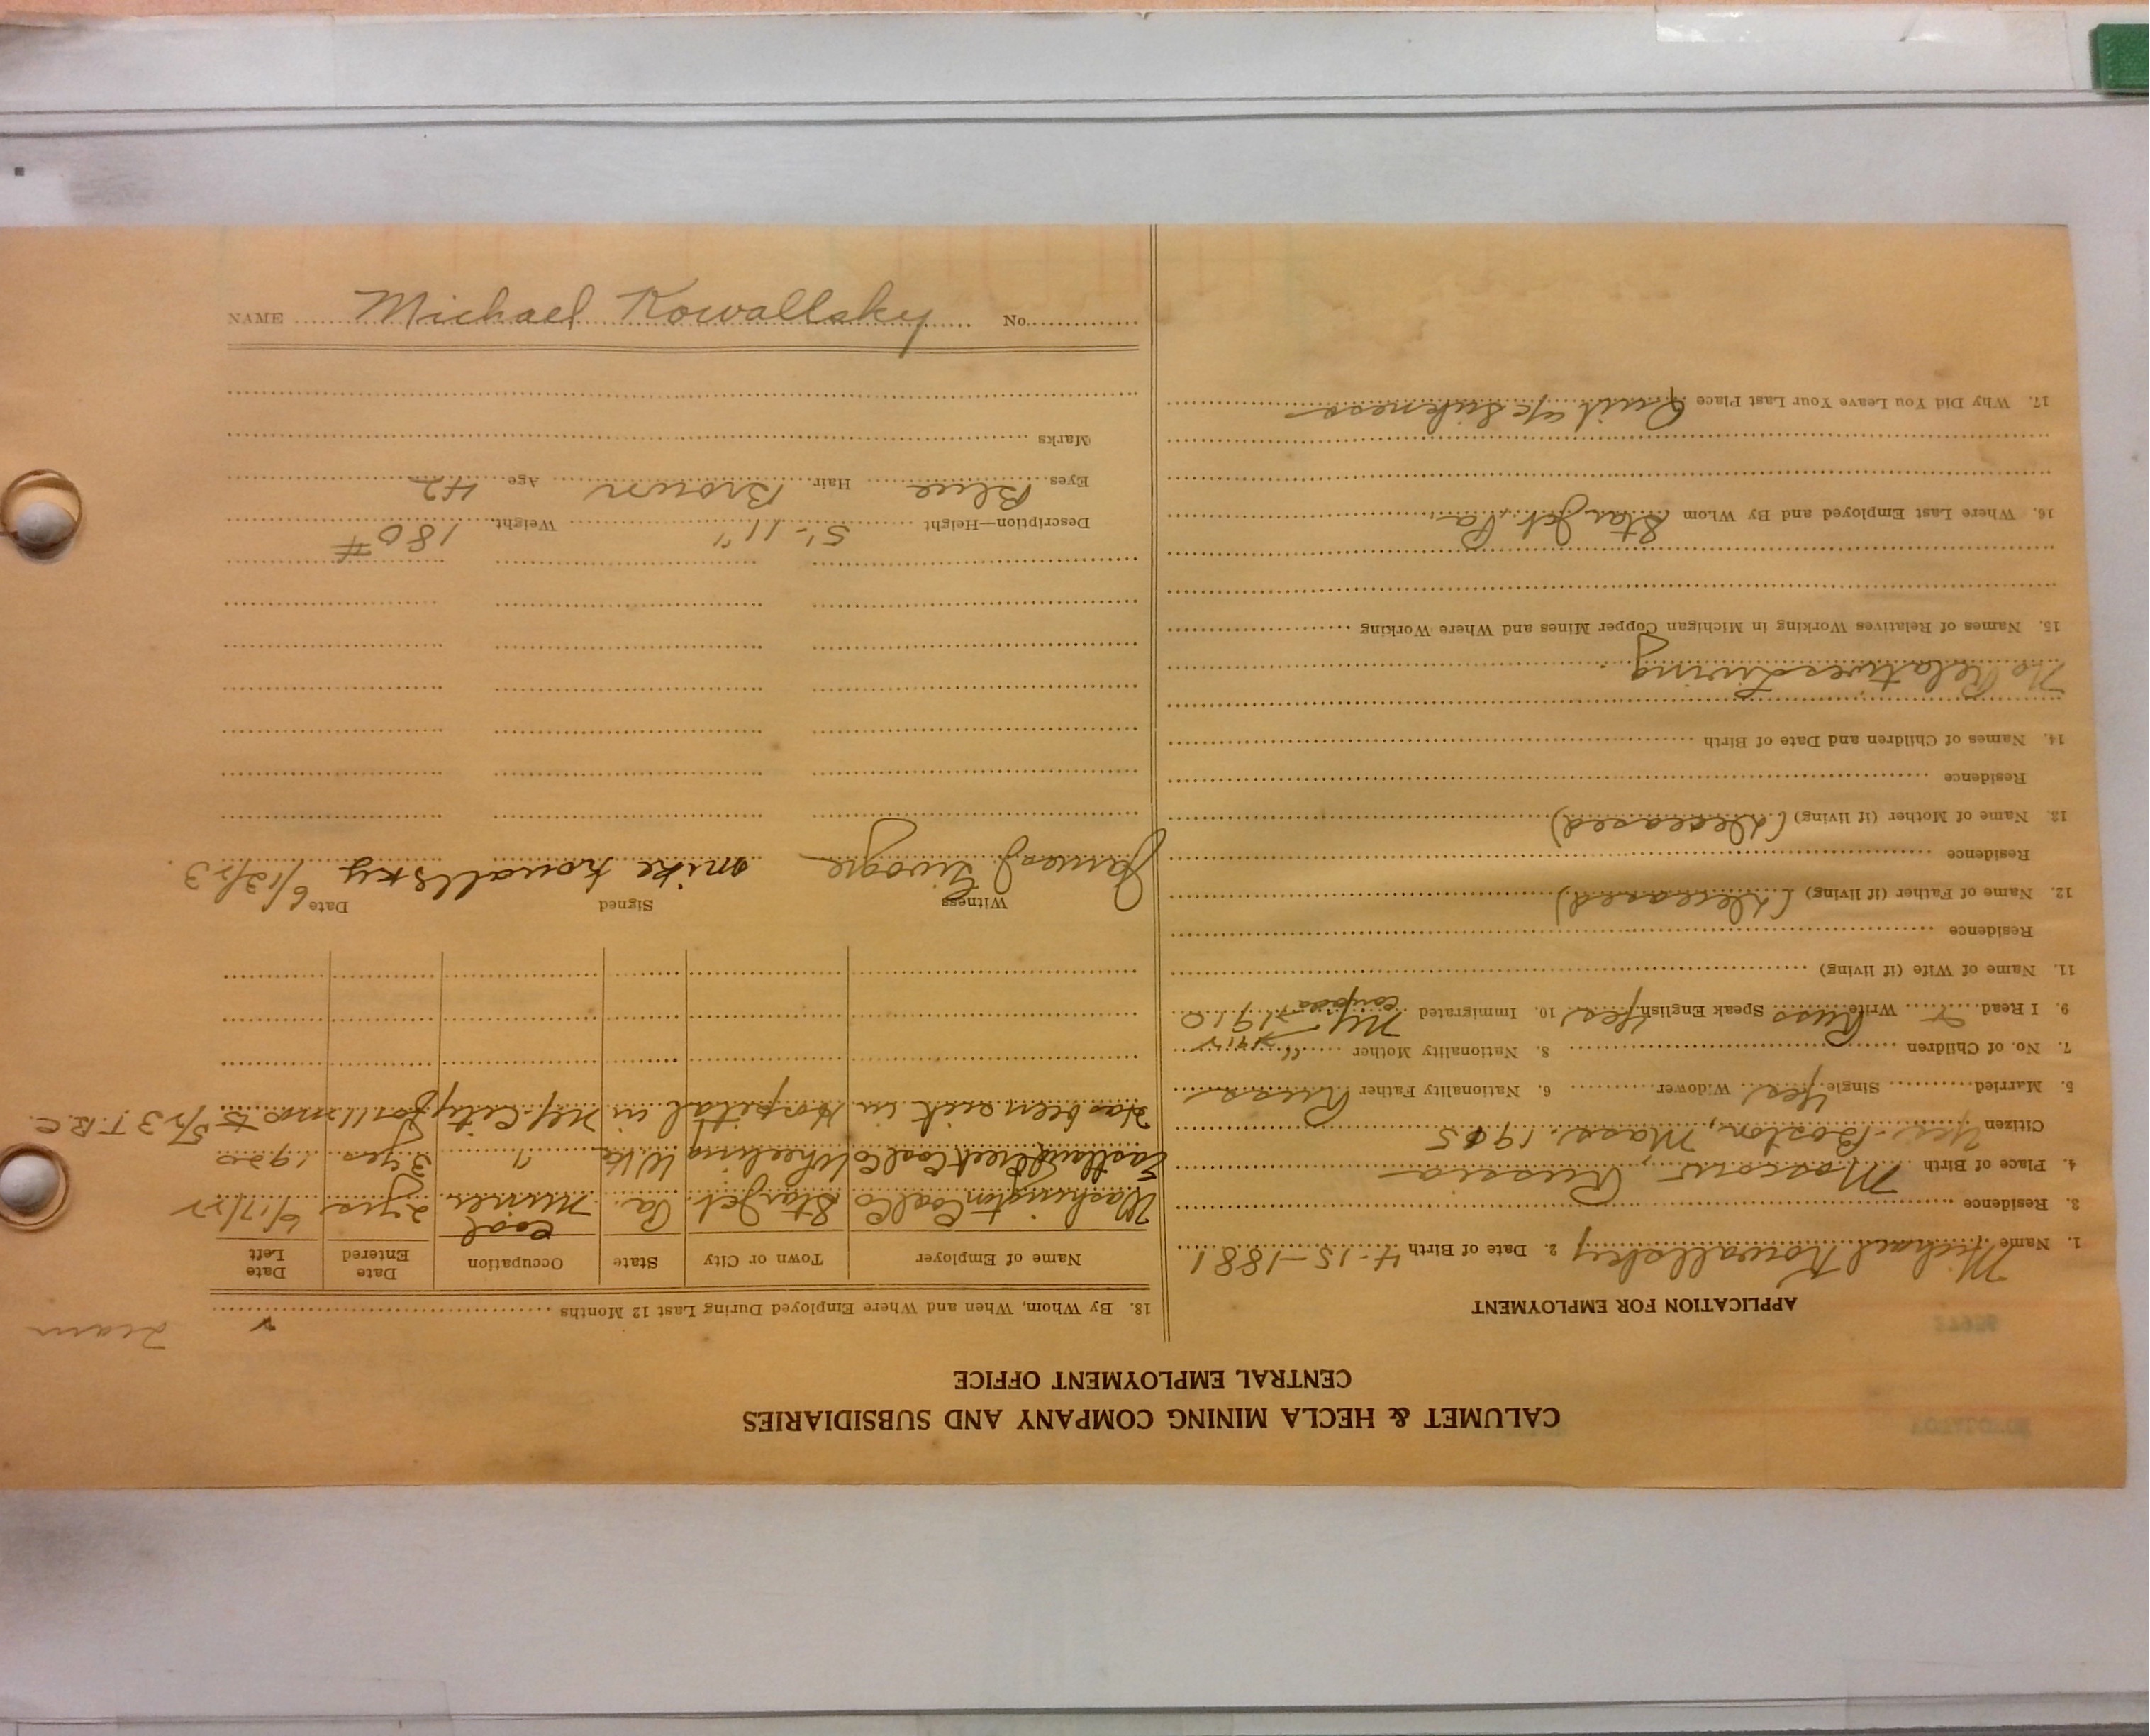 CALUMET & HECLA MINING COMPANY AND SUBSIDIARIES
CENTRAL EMPLOYMENT OFFICE
APPLICATION FOR EMPLOYMENT
1. Name Michael Kowallsky 2. Date of Birth 4-15-1881
3. Residence
4. Place of Birth Moscow, Russia
Citizen Yes-Boston, Mass. 1915
5. Married Single Yes Widower 6. Nationality Father Russ
7. No. of Children 8. Nationality Mother "
9. I Read & Write Russ Speak English Yes 10. Immigrated N.Y. 1910
11. Name of Wife (if living)
Residence
12. Name of Father (if living) (Deceased)
Residence
13. Name of Mother (if living) (Deceased)
Residence
14. Names of Children and Date of Birth
No Relatives Living.
15. Names of Relatives Working in Michigan Copper Mines and Where Working
16. Where Last Employed and By Whom Star Jct. Pa.
17. Why Did You Leave Your Last Place Quit a/c Sickness
18. By Whom, When and Where Employed During Last 12 Months
Name of Employer Town or City State Occupation Date Entered Date Left
Washington Coal Co Star Jct. Pa. Coal Miner 2 yrs 6/17/22
Coal Co Wheeling W Va " 3 yrs 1920
Has been sick in Hospital in N.Y. City for 11 mos to 5/23 T.B.C.
Witness Signed Date 6/13/23
James J mike kowallsky
Description—Height 5'-11" Weight 180#
Eyes Blue Hair Brown Age 42
Marks
NAME Michael Kowallsky No.